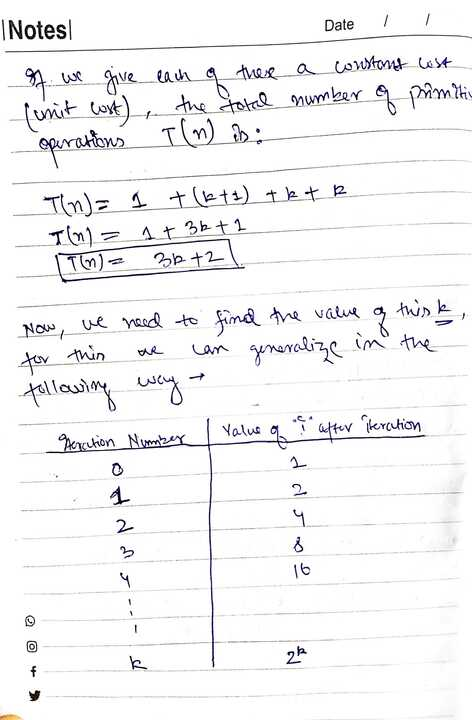 |Notes|
Date / /
If we give each of these a constant cost
(unit cost), the total number of primitiv
operations T(n) is:
T(n) = 1 + (k+1) + k + k
T(n) = 1 + 3k + 1
T(n) = 3k + 2
Now, we need to find the value of this k,
for this we can generalize in the
following way →
Iteration Number | Value of "i" after iteration
0 1
1 2
2 4
3 8
4 16
k 2^k